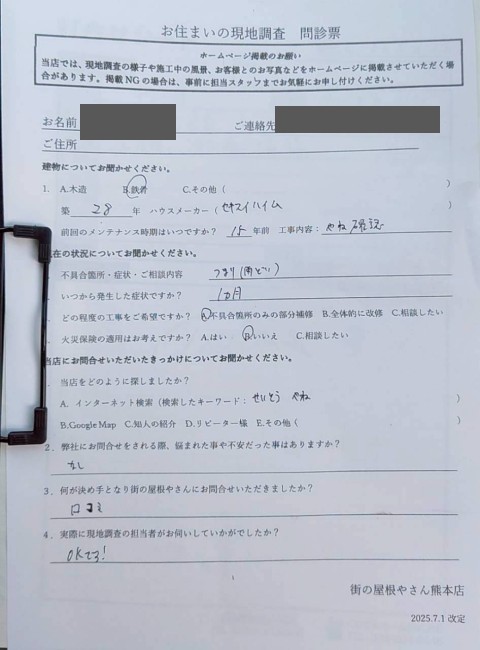 お住まいの現地調査 問診票
ホームページ掲載のお願い
当店では、現地調査の様子や施工中の風景、お客様とのお写真などをホームページに掲載させていただく場
合があります。掲載NGの場合は、事前に担当スタッフまでお気軽にお申し付けください。
お名前 ご連絡先
ご住所
建物についてお聞かせください。
1. A.木造 B.鉄骨 C.その他( )
築 28 年 ハウスメーカー( セキスイハイム
前回のメンテナンス時期はいつですか? 15 年前 工事内容: やね確認
現在の状況についてお聞かせください。
不具合箇所・症状・ご相談内容 つまり(雨どい)
いつから発生した症状ですか? 1カ月
どの程度の工事をご希望ですか? A.不具合箇所のみの部分補修 B.全体的に改修 C.相談したい
火災保険の適用はお考えですか? A.はい B.いいえ C.相談したい
当店にお問合せいただいたきっかけについてお聞かせください。
当店をどのように探しましたか?
A. インターネット検索(検索したキーワード: せいとう やね )
B.Google Map C.知人の紹介 D.リピーター様 E.その他( )
2. 弊社にお問合せをされる際、悩まれた事や不安だった事はありますか?
なし
3. 何が決め手となり街の屋根やさんにお問合せいただきましたか?
口コミ
4. 実際に現地調査の担当者がお伺いしていかがでしたか?
OKです!
街の屋根やさん熊本店
2025.7.1 改定